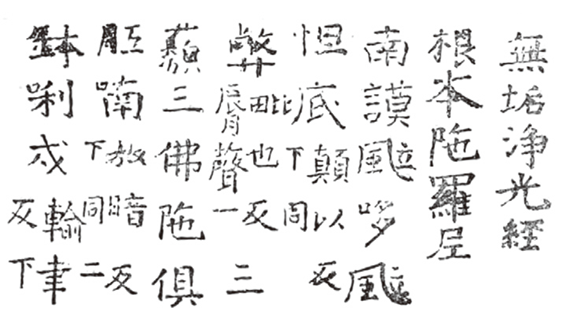 無垢淨光經
根本陁羅尼
南謨颯哆颯
怛底顛以反下同
弊毗也反脣聲一三
藐三佛陁俱
胝喃奴暗反下同二
鉢唎戍輸聿反下